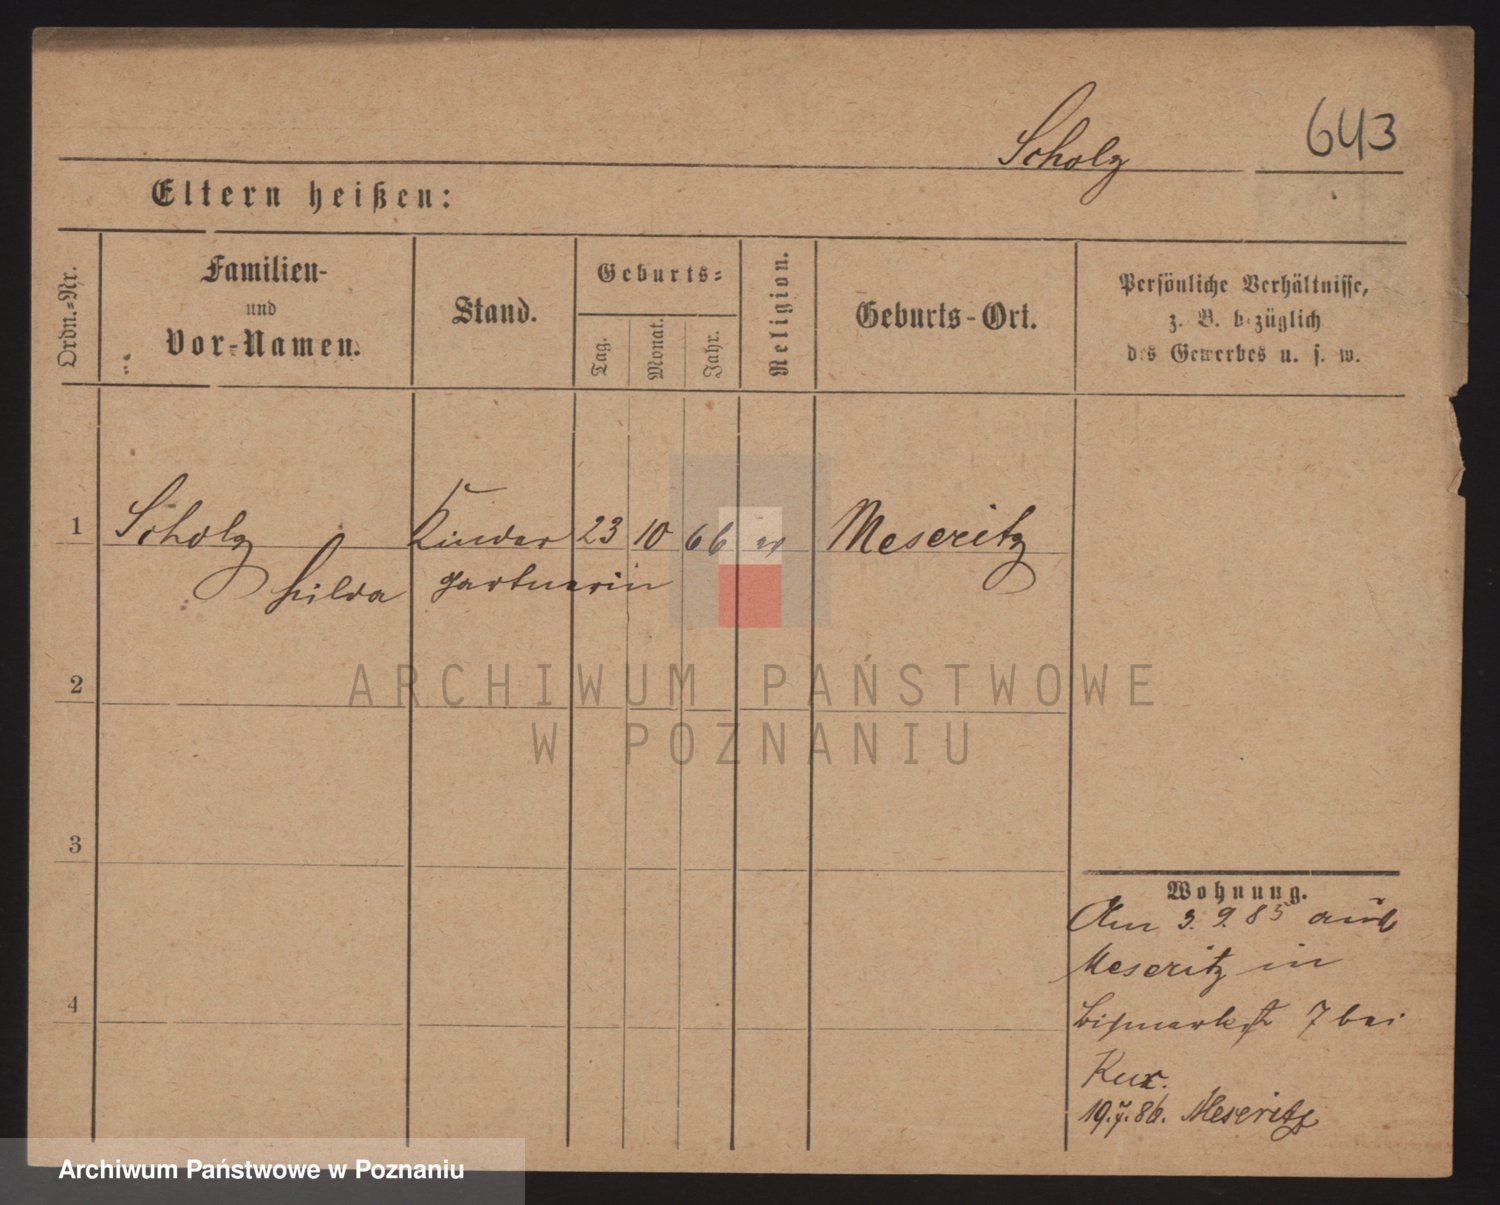 Scholz 643
Eltern heißen:
Ordn.-Nr.
Familien-
und
Vor-Namen.
Stand.
Geburts-
Tag.
Monat.
Jahr.
Religion.
Geburts-Ort.
Persönliche Verhältnisse,
z. B. bezüglich
des Gewerbes u. s. w.
1 Scholz Kinder 23 10 66 ev Meseritz
Hilda gartnerin
2
3
4
Wohnung.
Am 3. 9. 85 aus
Meseritz in
Bismarkst 7 bei
Kux.
19. 7. 86. Meseritz
ARCHIWUM PAŃSTWOWE
W POZNANIU
Archiwum Państwowe w Poznaniu